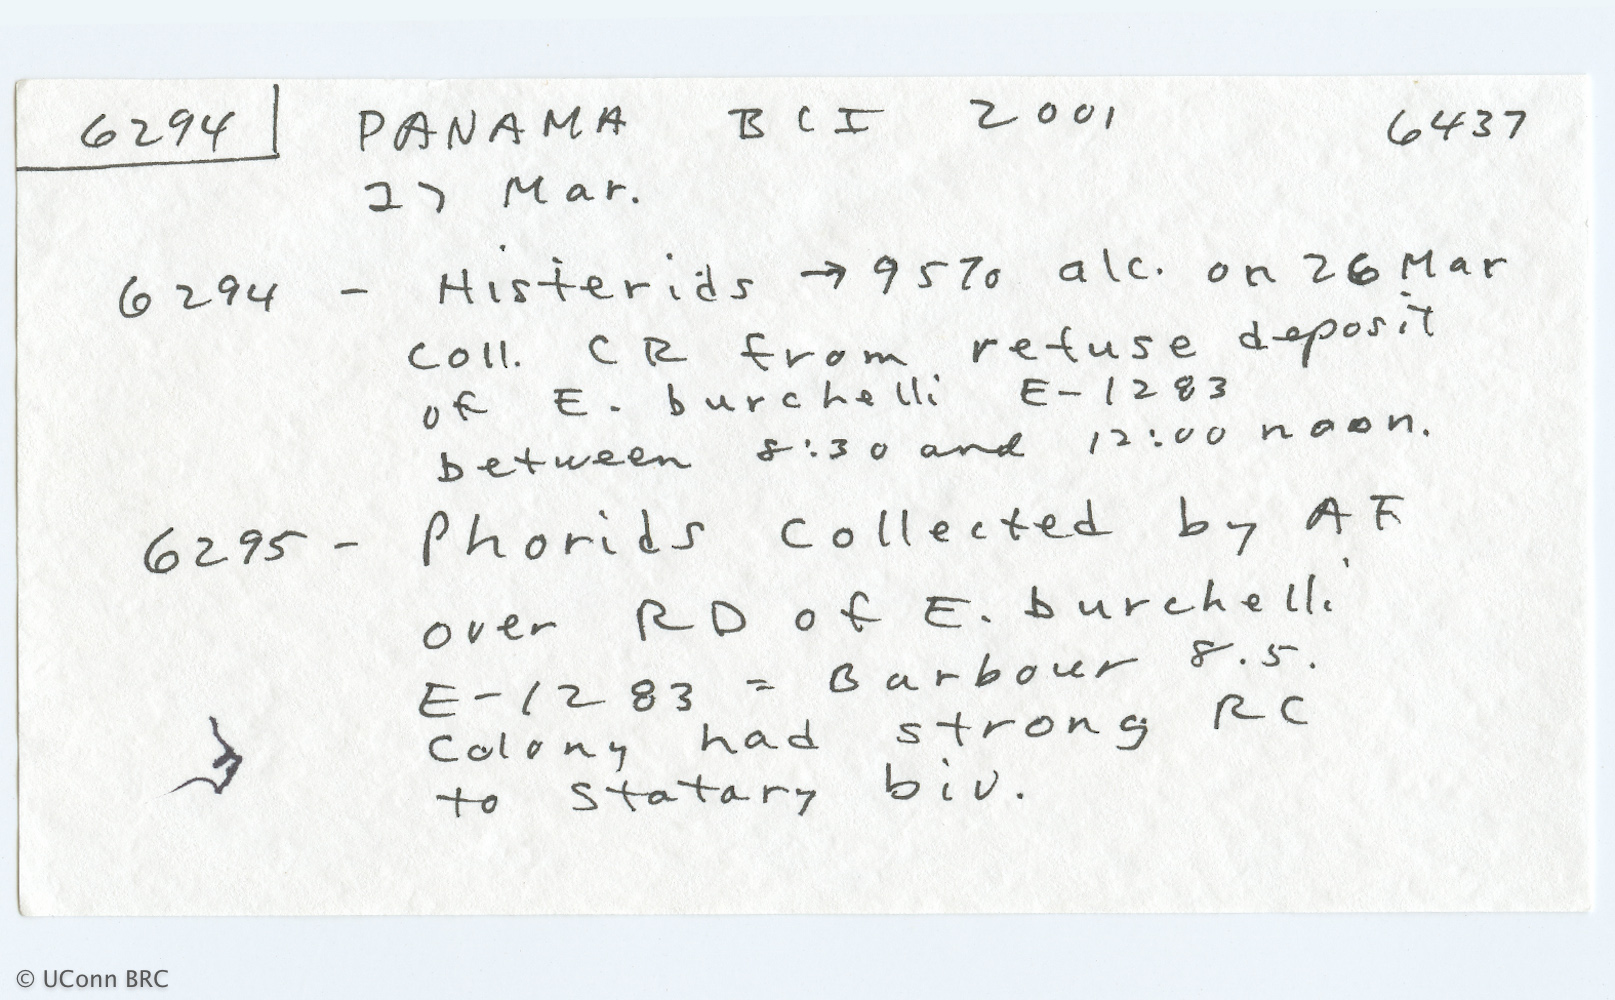 6294 PANAMA BCI 2001 6437
27 Mar.
6294 - Histerids → 95% alc. on 26 Mar
coll. CR from refuse deposit
of E. burchelli E-1283
between 8:30 and 12:00 noon.
6295 - Phorids collected by AF
over RD of E. burchelli
E-1283 = Barbour 8.5.
Colony had strong RC
to statary biv.
© UConn BRC